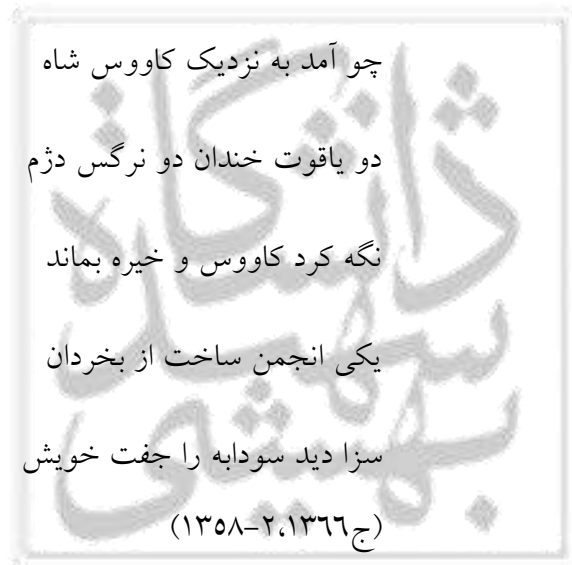 چو آمد به نزدیک کاووس شاه
دو یاقوت خندان دو نرگس دژم
نگه کرد کاووس و خیره بماند
یکی انجمن ساخت از بخردان
سزا دید سودابه را جفت خویش
(ج۲،۱۳۶۶-۱۳۵۸)
دانشگاه
شهید
بهشتی